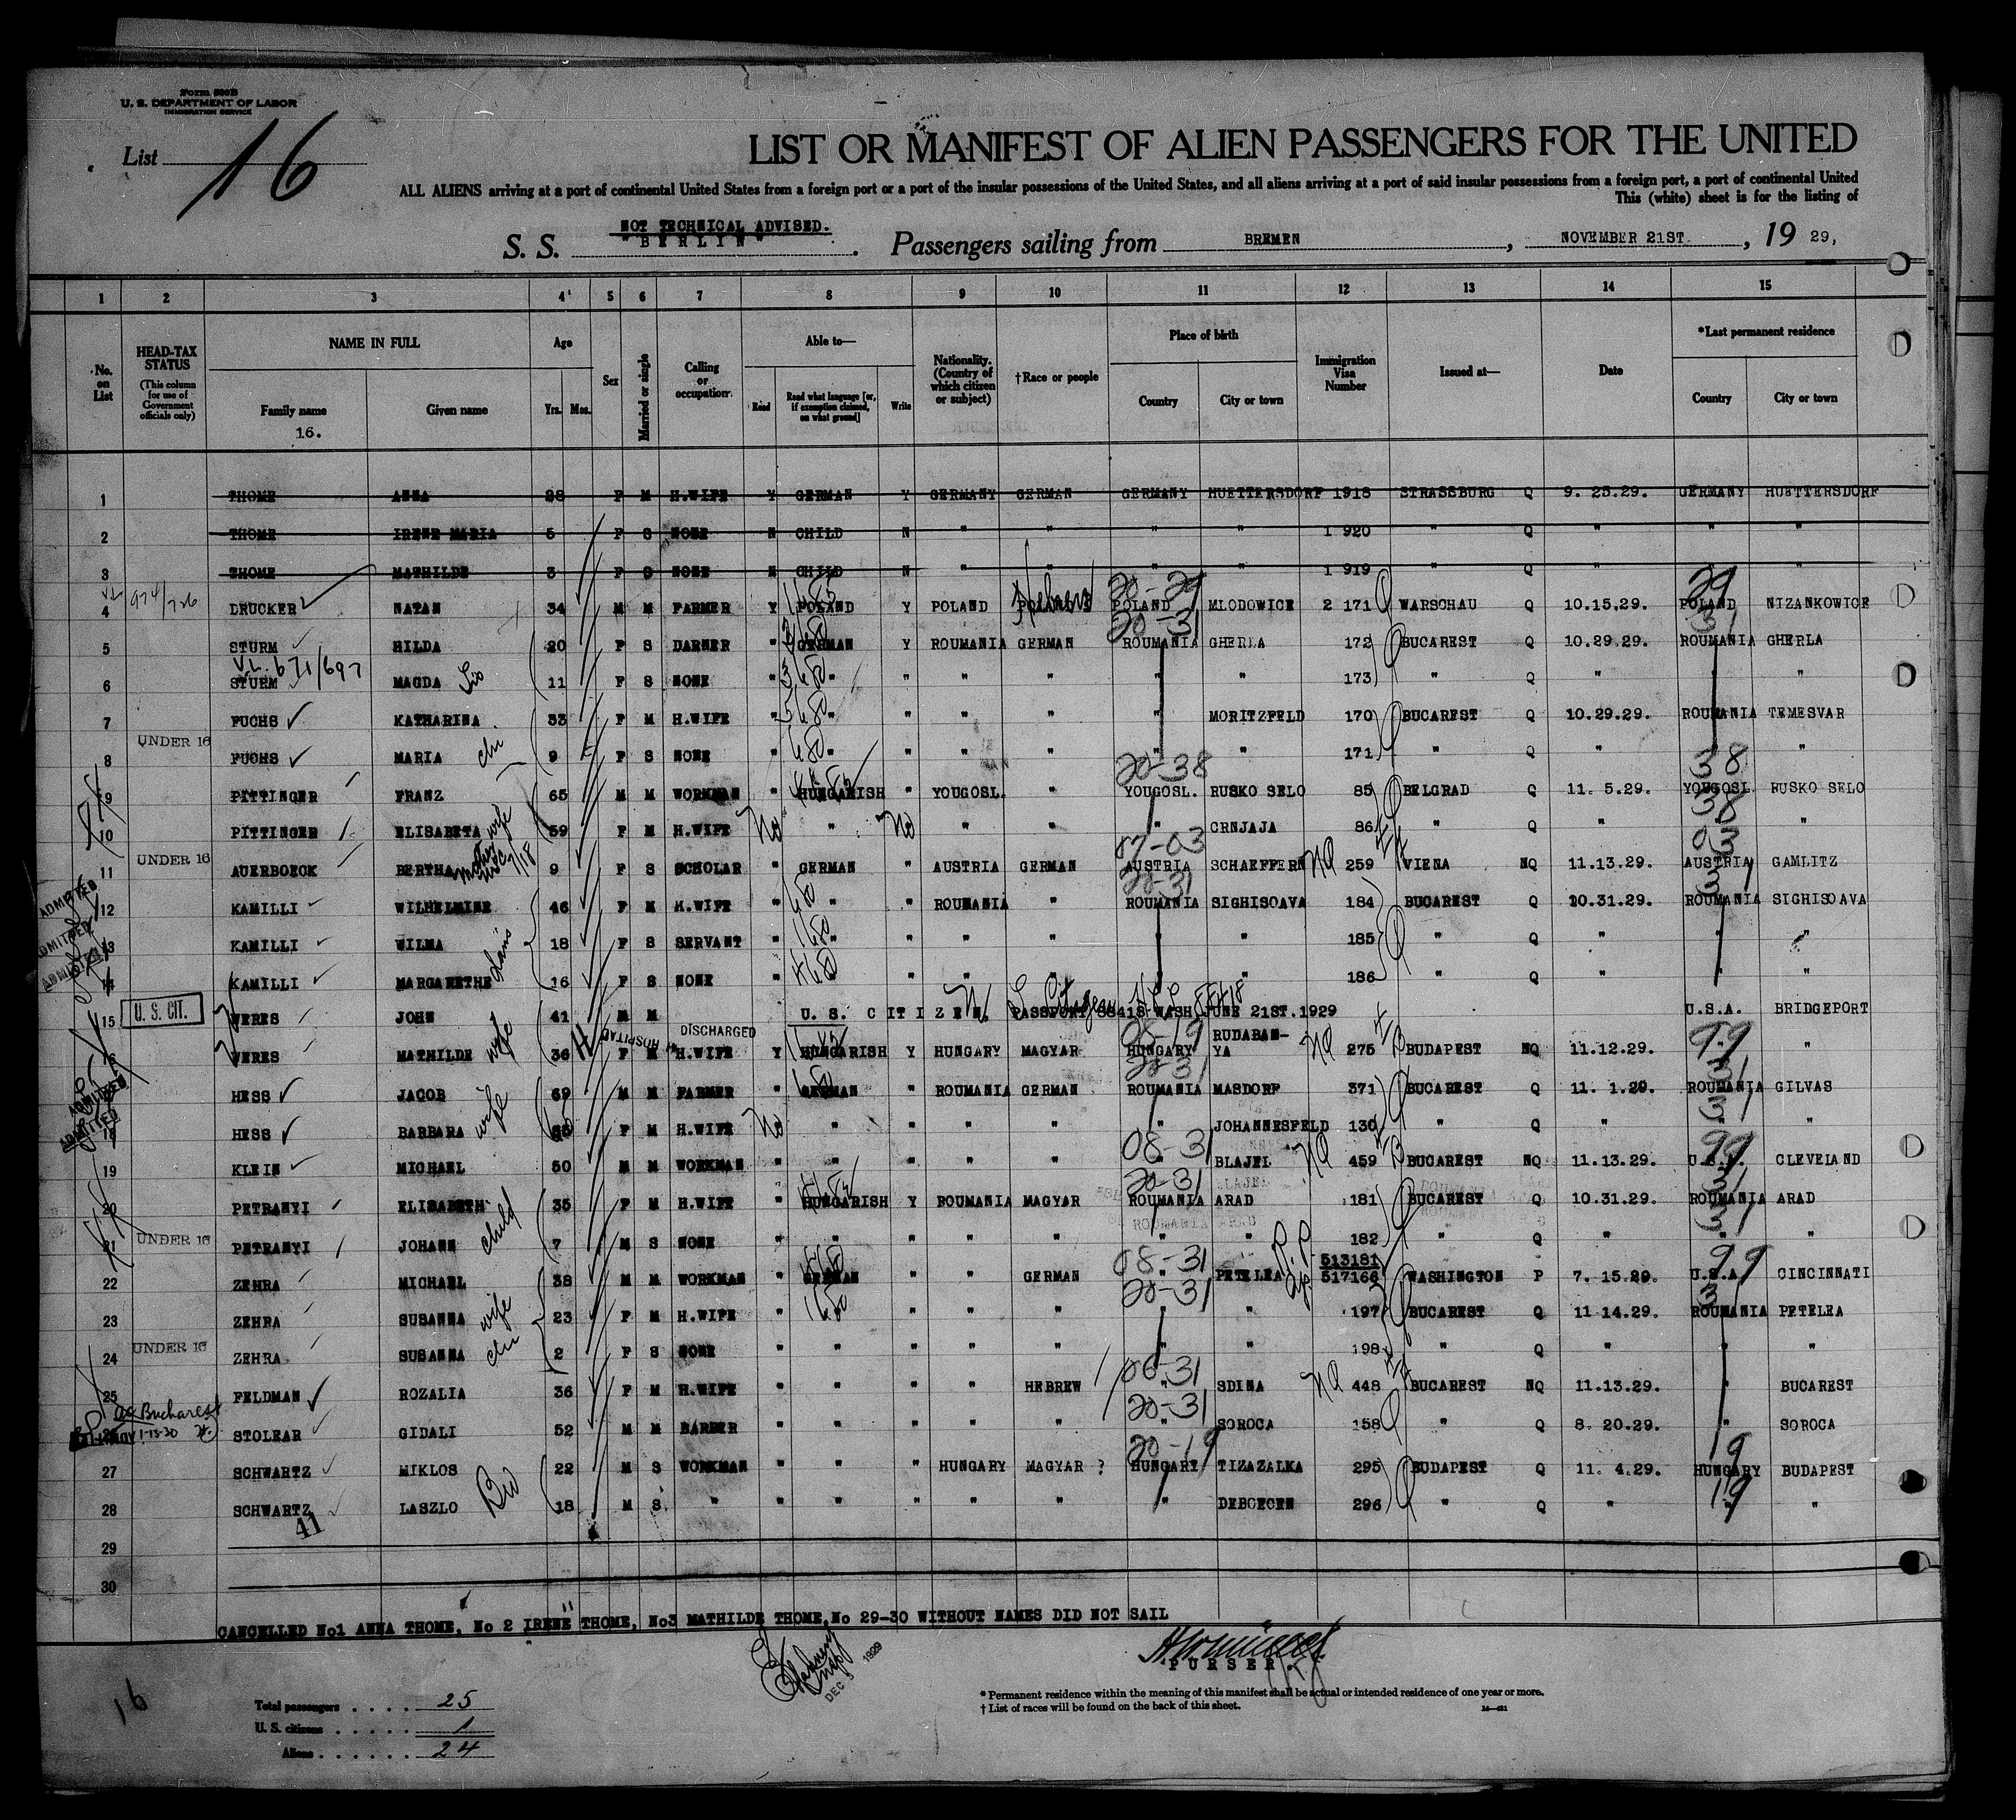 Form 500B
U. S. DEPARTMENT OF LABOR
IMMIGRATION SERVICE
List 16
LIST OR MANIFEST OF ALIEN PASSENGERS FOR THE UNITED
ALL ALIENS arriving at a port of continental United States from a foreign port or a port of the insular possessions of the United States, and all aliens arriving at a port of said insular possessions from a foreign port, a port of continental United
This (white) sheet is for the listing of
NOT TECHNICAL ADVISED.
S. S. "BERLIN". Passengers sailing from BREMEN, NOVEMBER 21ST, 19 29,
1 2 3 4 5 6 7 8 9 10 11 12 13 14 15
No. on List
HEAD-TAX STATUS (This column for use of Government officials only)
NAME IN FULL
Family name
16.
Given name
Age
Yrs. Mos.
Sex
Married or single
Calling or occupation
Able to—
Read
Read what language [or, if exemption claimed, on what ground]
Write
Nationality. (Country of which citizen or subject)
†Race or people
Place of birth
Country
City or town
Immigration Visa Number
Issued at—
Date
*Last permanent residence
Country
City or town
1 THOME ANNA 28 F M H.WIFE Y GERMAN Y GERMANY GERMAN GERMANY HUETTERSDORF 1918 STRASSBURG Q 9. 25.29. GERMANY HUETTERSDORF
2 THOME IRENE MARIA 5 F S NONE N CHILD N " " " " 1 920 " Q " " "
3 THOME MATHILDE 3 F S NONE N CHILD N " " " " 1 919 " Q " " "
4 DRUCKER NATAN 34 M M FARMER Y POLAND Y POLAND Hebrew 20-29 POLAND MLODOWICE 2 171 WARSCHAU Q 10.15.29. 29 POLAND NIZANKOWICE
5 STURM HILDA 20 F S DARNER " GERMAN Y ROUMANIA GERMAN 20-31 ROUMANIA GHERLA 172 BUCAREST Q 10.29.29. 31 ROUMANIA GHERLA
V.L. 671/697
6 STURM MAGDA Sis 11 F S NONE " " " " " " " 173 " Q " "
7 FUCHS KATHARINA 33 F M H.WIFE " " " " " " MORITZFELD 170 BUCAREST Q 10.29.29. ROUMANIA TEMESVAR
UNDER 16
8 FUCHS MARIA chi 9 F S NONE " " " " " " 171 " Q " "
9 PITTINGER FRANZ 65 M M WORKMAN " HUNGARISH " YOUGOSL. " 20-38 YOUGOSL. RUSKO SELO 85 BELGRAD Q 11. 5.29. 38 YOUGOSL. RUSKO SELO
10 PITTINGER ELISABETA wife 59 F M H.WIFE No " No " " " CRNJAJA 86 " Q " 38 "
UNDER 16
11 AUERBOECK BERTHA 9 F S SCHOLAR " GERMAN " AUSTRIA GERMAN 07-03 AUSTRIA SCHAEFFERN NQ 259 VIENA NQ 11.13.29. 03 AUSTRIA GAMLITZ
ADMITTED
12 KAMILLI WILHELMINE 46 F M H.WIFE " " " ROUMANIA " 20-31 ROUMANIA SIGHISOAVA 184 BUCAREST Q 10.31.29. ROUMANIA SIGHISOAVA
ADMITTED
13 KAMILLI WILMA 18 F S SERVANT " " " " " " 185 " Q " "
ADMITTED
14 KAMILLI MARGARETHE 16 F S NONE " " " " " " 186 " Q " "
15 U. S. CIT. VERES JOHN 41 M M U. S. CITIZEN. PASSPORT WASH JUNE 21ST.1929 U.S.A. BRIDGEPORT
HOSPITAL DISCHARGED
16 VERES MATHILDE wife 36 F M H.WIFE Y HUNGARISH Y HUNGARY MAGYAR 08-19 HUNGARY RUDABAN-YA NQ 275 BUDAPEST NQ 11.12.29. 99 "
ADMITTED
17 HESS JACOB 69 M M FARMER " GERMAN " ROUMANIA GERMAN 20-31 ROUMANIA MASDORF 371 BUCAREST Q 11. 1.29. 31 ROUMANIA GILVAS
ADMITTED
18 HESS BARBARA wife F M H.WIFE No " " " " " JOHANNESFELD 130 " Q " "
19 KLEIN MICHAEL 50 M M WORKMAN " " " " " 08-31 " BLAJEL NQ 459 BUCAREST NQ 11.13.29. 99 U.S.A. CLEVELAND
20 PETRANYI ELISABETH 35 F M H.WIFE " HUNGARISH Y ROUMANIA MAGYAR 20-31 ROUMANIA ARAD 181 BUCAREST Q 10.31.29. 31 ROUMANIA ARAD
UNDER 16
21 PETRANYI JOHANN child 7 M S NONE " " " " " " " 182 " Q " " "
22 ZEHRA MICHAEL 38 M M WORKMAN " GERMAN " " GERMAN 08-31 " PETELEA P.P. 513181 517166 WASHINGTON P 7. 15.29. 99 U.S.A. CINCINNATI
23 ZEHRA SUSANNA wife 23 F M H.WIFE " " " " " 20-31 " " 197 BUCAREST Q 11 14.29. ROUMANIA PETELEA
UNDER 16
24 ZEHRA SUSANNA chi 2 F S NONE " " " " " " " 198 " Q " " "
25 FELDMAN ROZALIA 36 F M H.WIFE " " " " HEBREW 06-31 " SDINA NQ 448 BUCAREST NQ 11.13.29. " BUCAREST
Bucharest
1-13-30
26 STOLEAR GIDALI 52 M M BARBER " " " " " 20-31 " SOROCA 158 " Q 8. 20.29. " SOROCA
27 SCHWARTZ MIKLOS 22 M S WORKMAN " " " HUNGARY MAGYAR ? 20-19 HUNGARY TIZAZALKA 295 BUDAPEST Q 11. 4.29. 19 HUNGARY BUDAPEST
28 SCHWARTZ LASZLO Bro 18 M S " " " " " " " DEBCECEN 296 " Q " 19 "
41
29
30
CANCELLED No1 ANNA THOME, No 2 IRENE THOME, No3 MATHILDE THOME, No 29-30 WITHOUT NAMES DID NOT SAIL
DEC 3 1929
PURSER.
16
Total passengers . . . . 25
U. S. citizens . . . . . 1
Aliens . . . . . . 24
* Permanent residence within the meaning of this manifest shall be actual or intended residence of one year or more.
† List of races will be found on the back of this sheet.